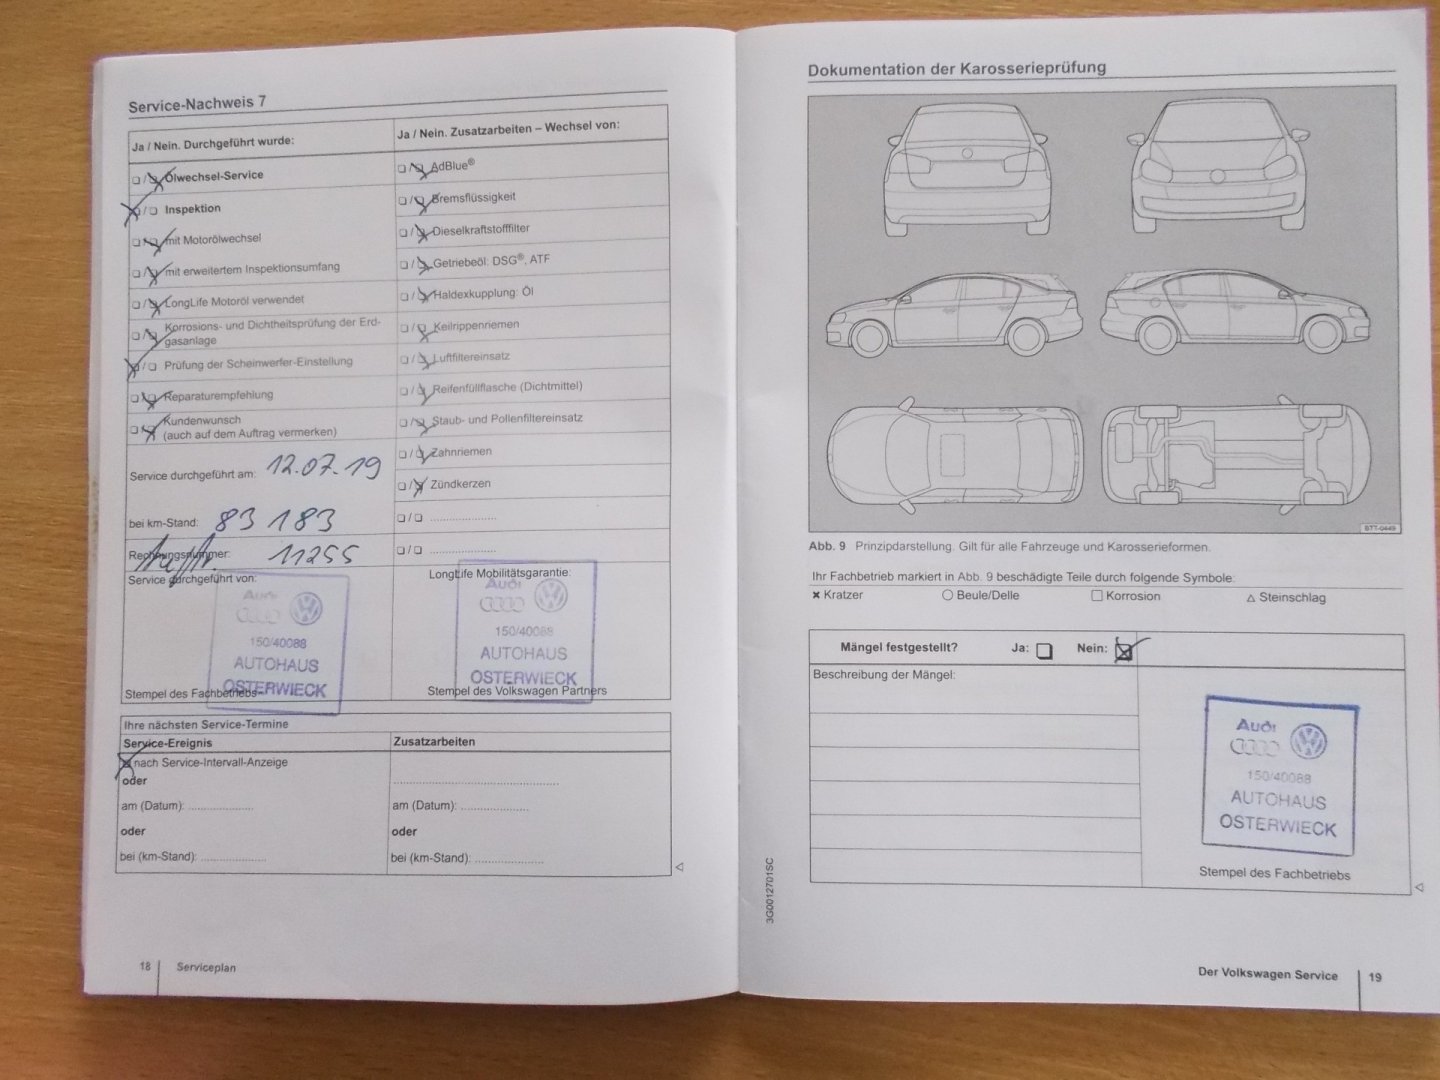 Service-Nachweis 7
Ja / Nein. Durchgeführt wurde:
Ölwechsel-Service
Inspektion
mit Motorölwechsel
mit erweitertem Inspektionsumfang
LongLife Motoröl verwendet
Korrosions- und Dichtheitsprüfung der Erd-
gasanlage
Prüfung der Scheinwerfer-Einstellung
Reparaturempfehlung
Kundenwunsch
(auch auf dem Auftrag vermerken)
Service durchgeführt am: 12.07.19
bei km-Stand: 83 183
Rechnungsnummer: 11255
Service durchgeführt von:
Audi
150/40088
AUTOHAUS
OSTERWIECK
Stempel des Fachbetriebs
Ja / Nein. Zusatzarbeiten – Wechsel von:
AdBlue®
Bremsflüssigkeit
Dieselkraftstofffilter
Getriebeöl: DSG®, ATF
Haldexkupplung: Öl
Keilrippenriemen
Luftfiltereinsatz
Reifenfüllflasche (Dichtmittel)
Staub- und Pollenfiltereinsatz
Zahnriemen
Zündkerzen
LongLife Mobilitätsgarantie:
Audi
150/40088
AUTOHAUS
OSTERWIECK
Stempel des Volkswagen Partners
Ihre nächsten Service-Termine
Service-Ereignis
nach Service-Intervall-Anzeige
oder
am (Datum): ....................
oder
bei (km-Stand): ....................
Zusatzarbeiten
am (Datum): ....................
oder
bei (km-Stand): ....................
18 Serviceplan
Dokumentation der Karosserieprüfung
BTT-0449
Abb. 9 Prinzipdarstellung. Gilt für alle Fahrzeuge und Karosserieformen.
Ihr Fachbetrieb markiert in Abb. 9 beschädigte Teile durch folgende Symbole:
✖ Kratzer ○ Beule/Delle □ Korrosion △ Steinschlag
Mängel festgestellt? Ja: Nein:
Beschreibung der Mängel:
Audi
150/40088
AUTOHAUS
OSTERWIECK
Stempel des Fachbetriebs
3G0012701SC
Der Volkswagen Service 19